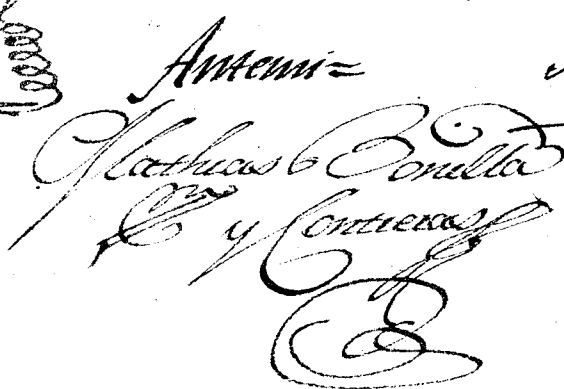 Antemi=
Mathias Bonilla
y Contreras